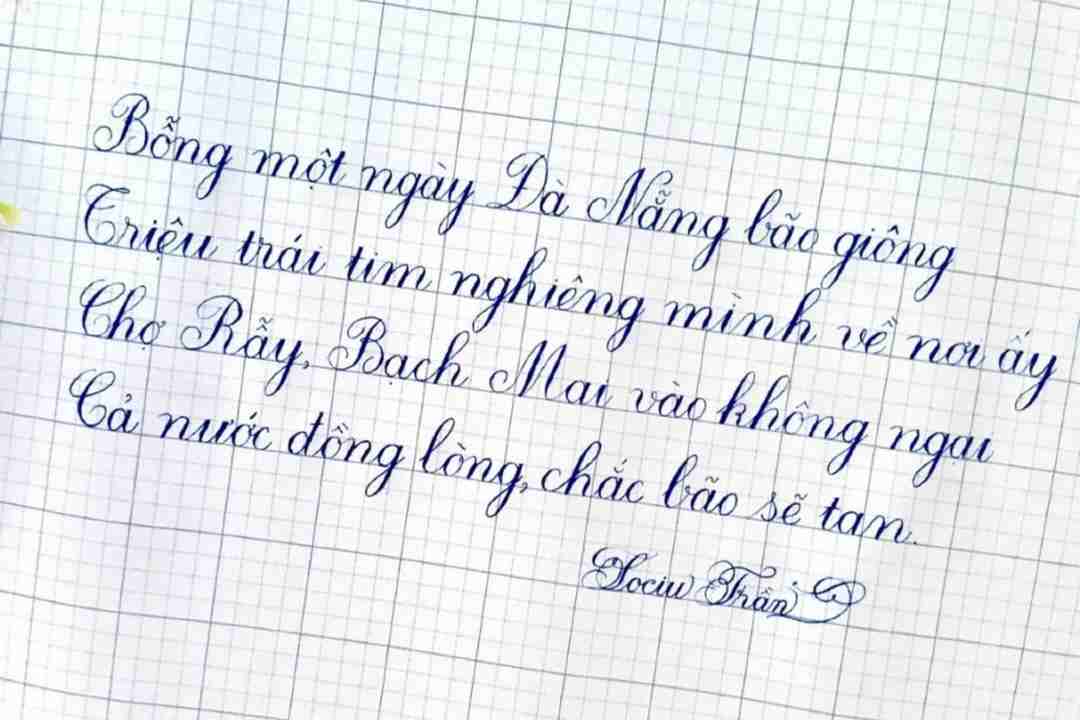 Bỗng một ngày Đà Nẵng bão giông
Triệu trái tim nghiêng mình về nơi ấy
Chợ Rẫy, Bạch Mai vào không ngại
Cả nước đồng lòng, chắc bão sẽ tan.
Trần